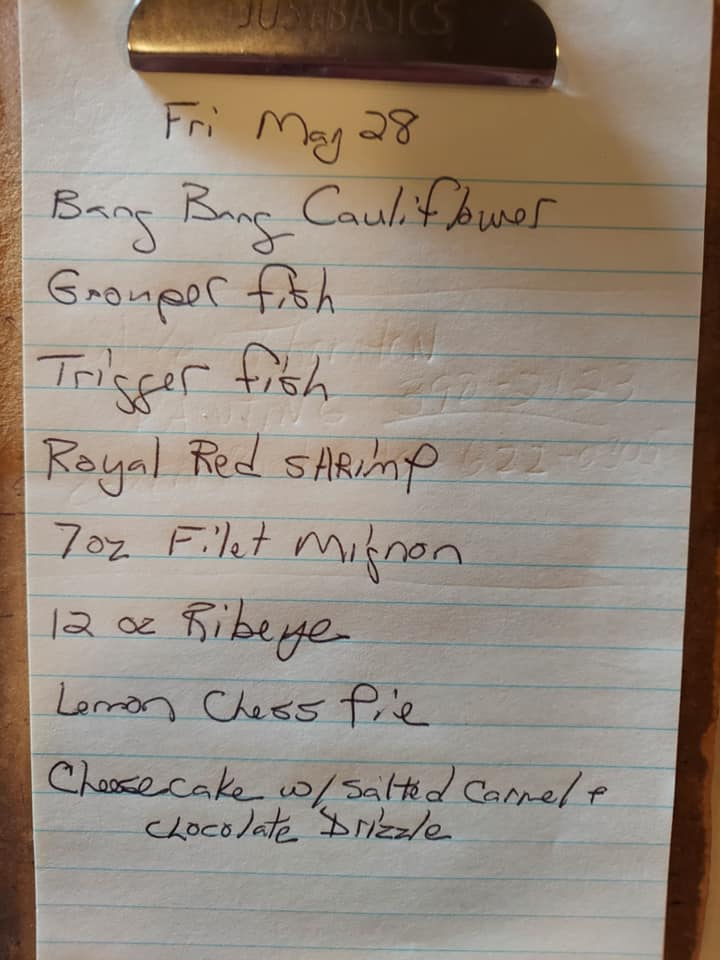 JUST BASICS
Fri May 28
Bang Bang Cauliflower
Grouper fish
Trigger fish
Royal Red SHRimp
7oz Filet Mignon
12 oz Ribeye
Lemon Chess Pie
Cheesecake w/ Salted Carmel &
chocolate Drizzle